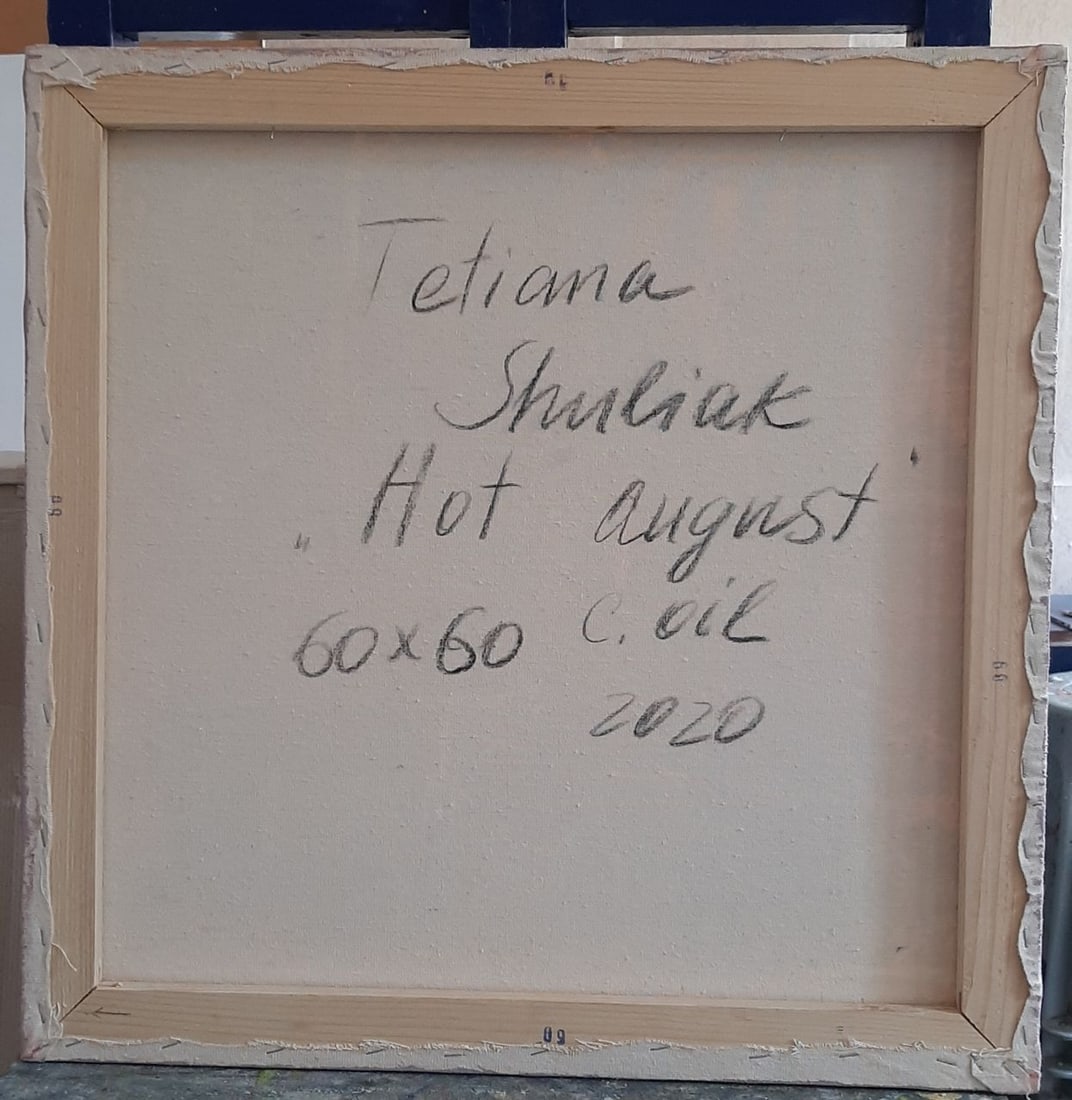 60
Tetiana
Shuliak
„Hot august'
60x60 c. oil
2020
60
60
60